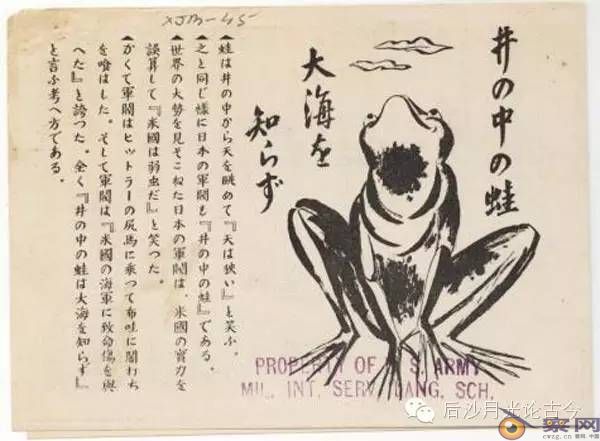 XJM-45
井の中の蛙
大海を
知らず
▲蛙は井の中から天を眺めて『天は狭い』と笑ふ。
之と同じ様に日本の軍閥も『井の中の蛙』である。
▲世界の大勢を見そこねた日本の軍閥は、米國の實力を
誤算して『米國は弱虫だ』と笑つた。
▲かくて軍閥はヒットラーの尻馬に乗つて布哇に闇わち
を喰はした。そして軍閥は『米國の海軍に致命傷を與
へた』と誇つた。全く『井の中の蛙は大海を知らず』
と言ふ考へ方である。
PROPERTY OF S. ARMY
MIL. INT. SERV. LANG. SCH.
后沙月光论古今
cwzg.cn